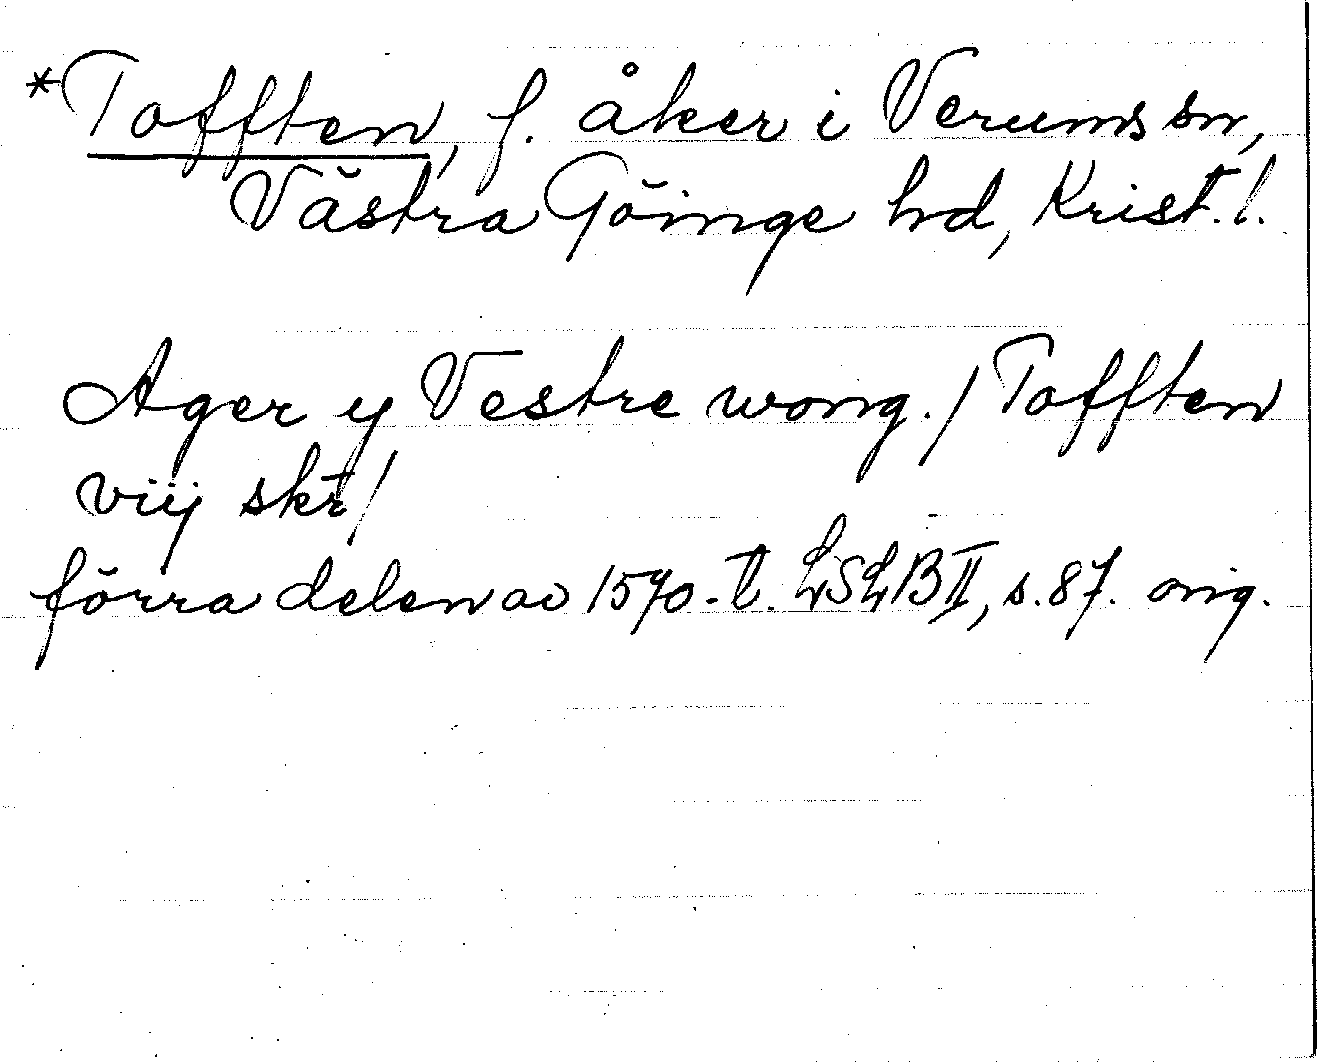 *Tofften, f. åker i Verums sn,
Västra Göinge hd, Krist. l.
Ager y Vestre wong. / Tofften
viij skr /
förra delen av 1570-t. LSLB II, s. 87. orig.